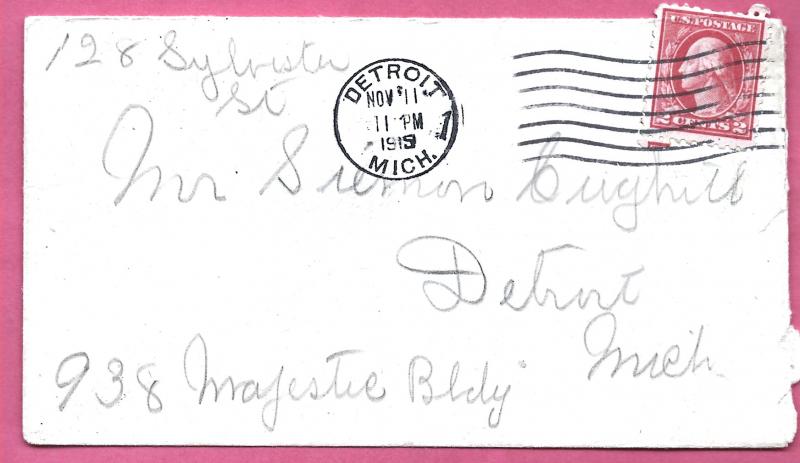 128 Sylvester
St
DETROIT
NOV 11
11 PM
1915
MICH.
1
U.S. POSTAGE
2 CENTS 2
Mr
Detroit
Mich
938 Majestic Bldg